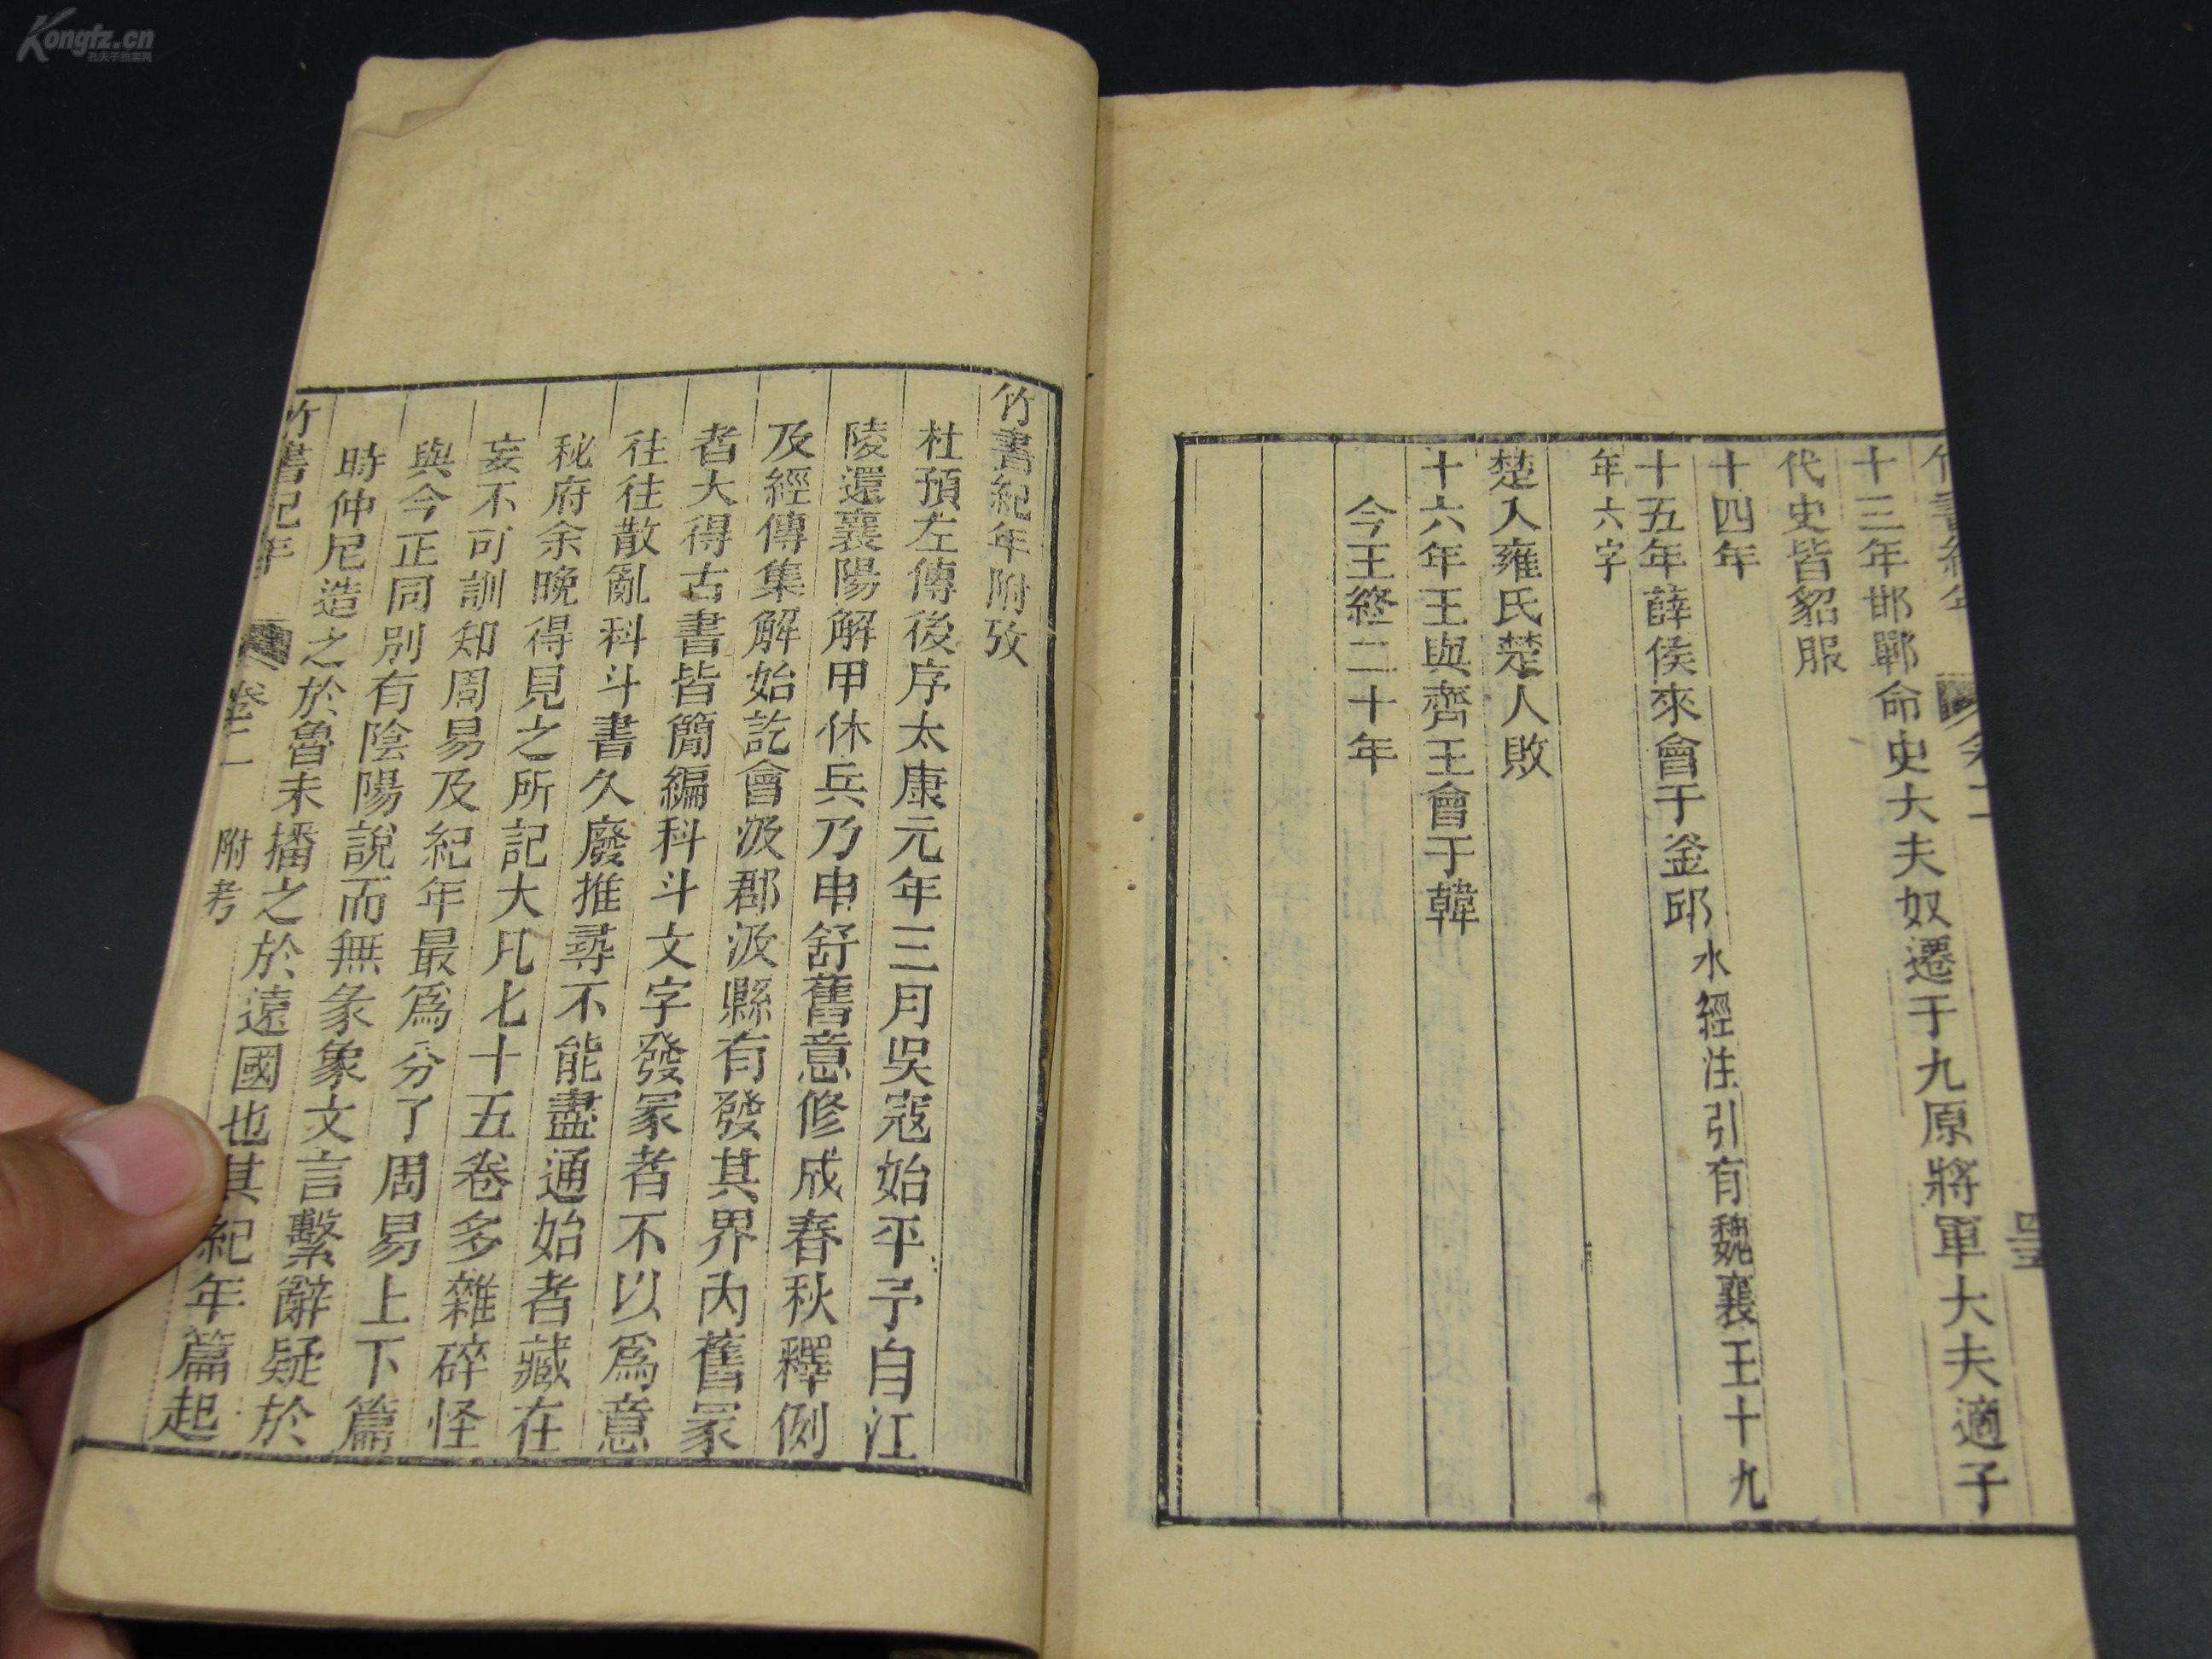 竹書紀年
十三年邯鄲命史大夫奴遷于九原將軍大夫適子
代史皆貂服
十四年
十五年薛侯來會于釜邱水經注引有魏襄王十九
年六字
楚入雍氏楚人敗
十六年王與齊王會于韓
今王終二十年
竹書紀年附攷
杜預左傳後序太康元年三月吳寇始平予自江
陵還襄陽解甲休兵乃申舒舊意修成春秋釋例
及經傳集解始訖會汲郡汲縣有發其界內舊冢
者大得古書皆簡編科斗文字發冢者不以為意
往往散亂科斗書久廢推尋不能盡通始者藏在
秘府余晚得見之所記大凡七十五卷多雜碎怪
妄不可訓知周易及紀年最為分了周易上下篇
與今正同別有陰陽說而無彖象文言繫辭疑於
時仲尼造之於魯未播之於遠國也其紀年篇起
竹書紀年 卷二 附考
Kongfz.cn
孔夫子旧书网